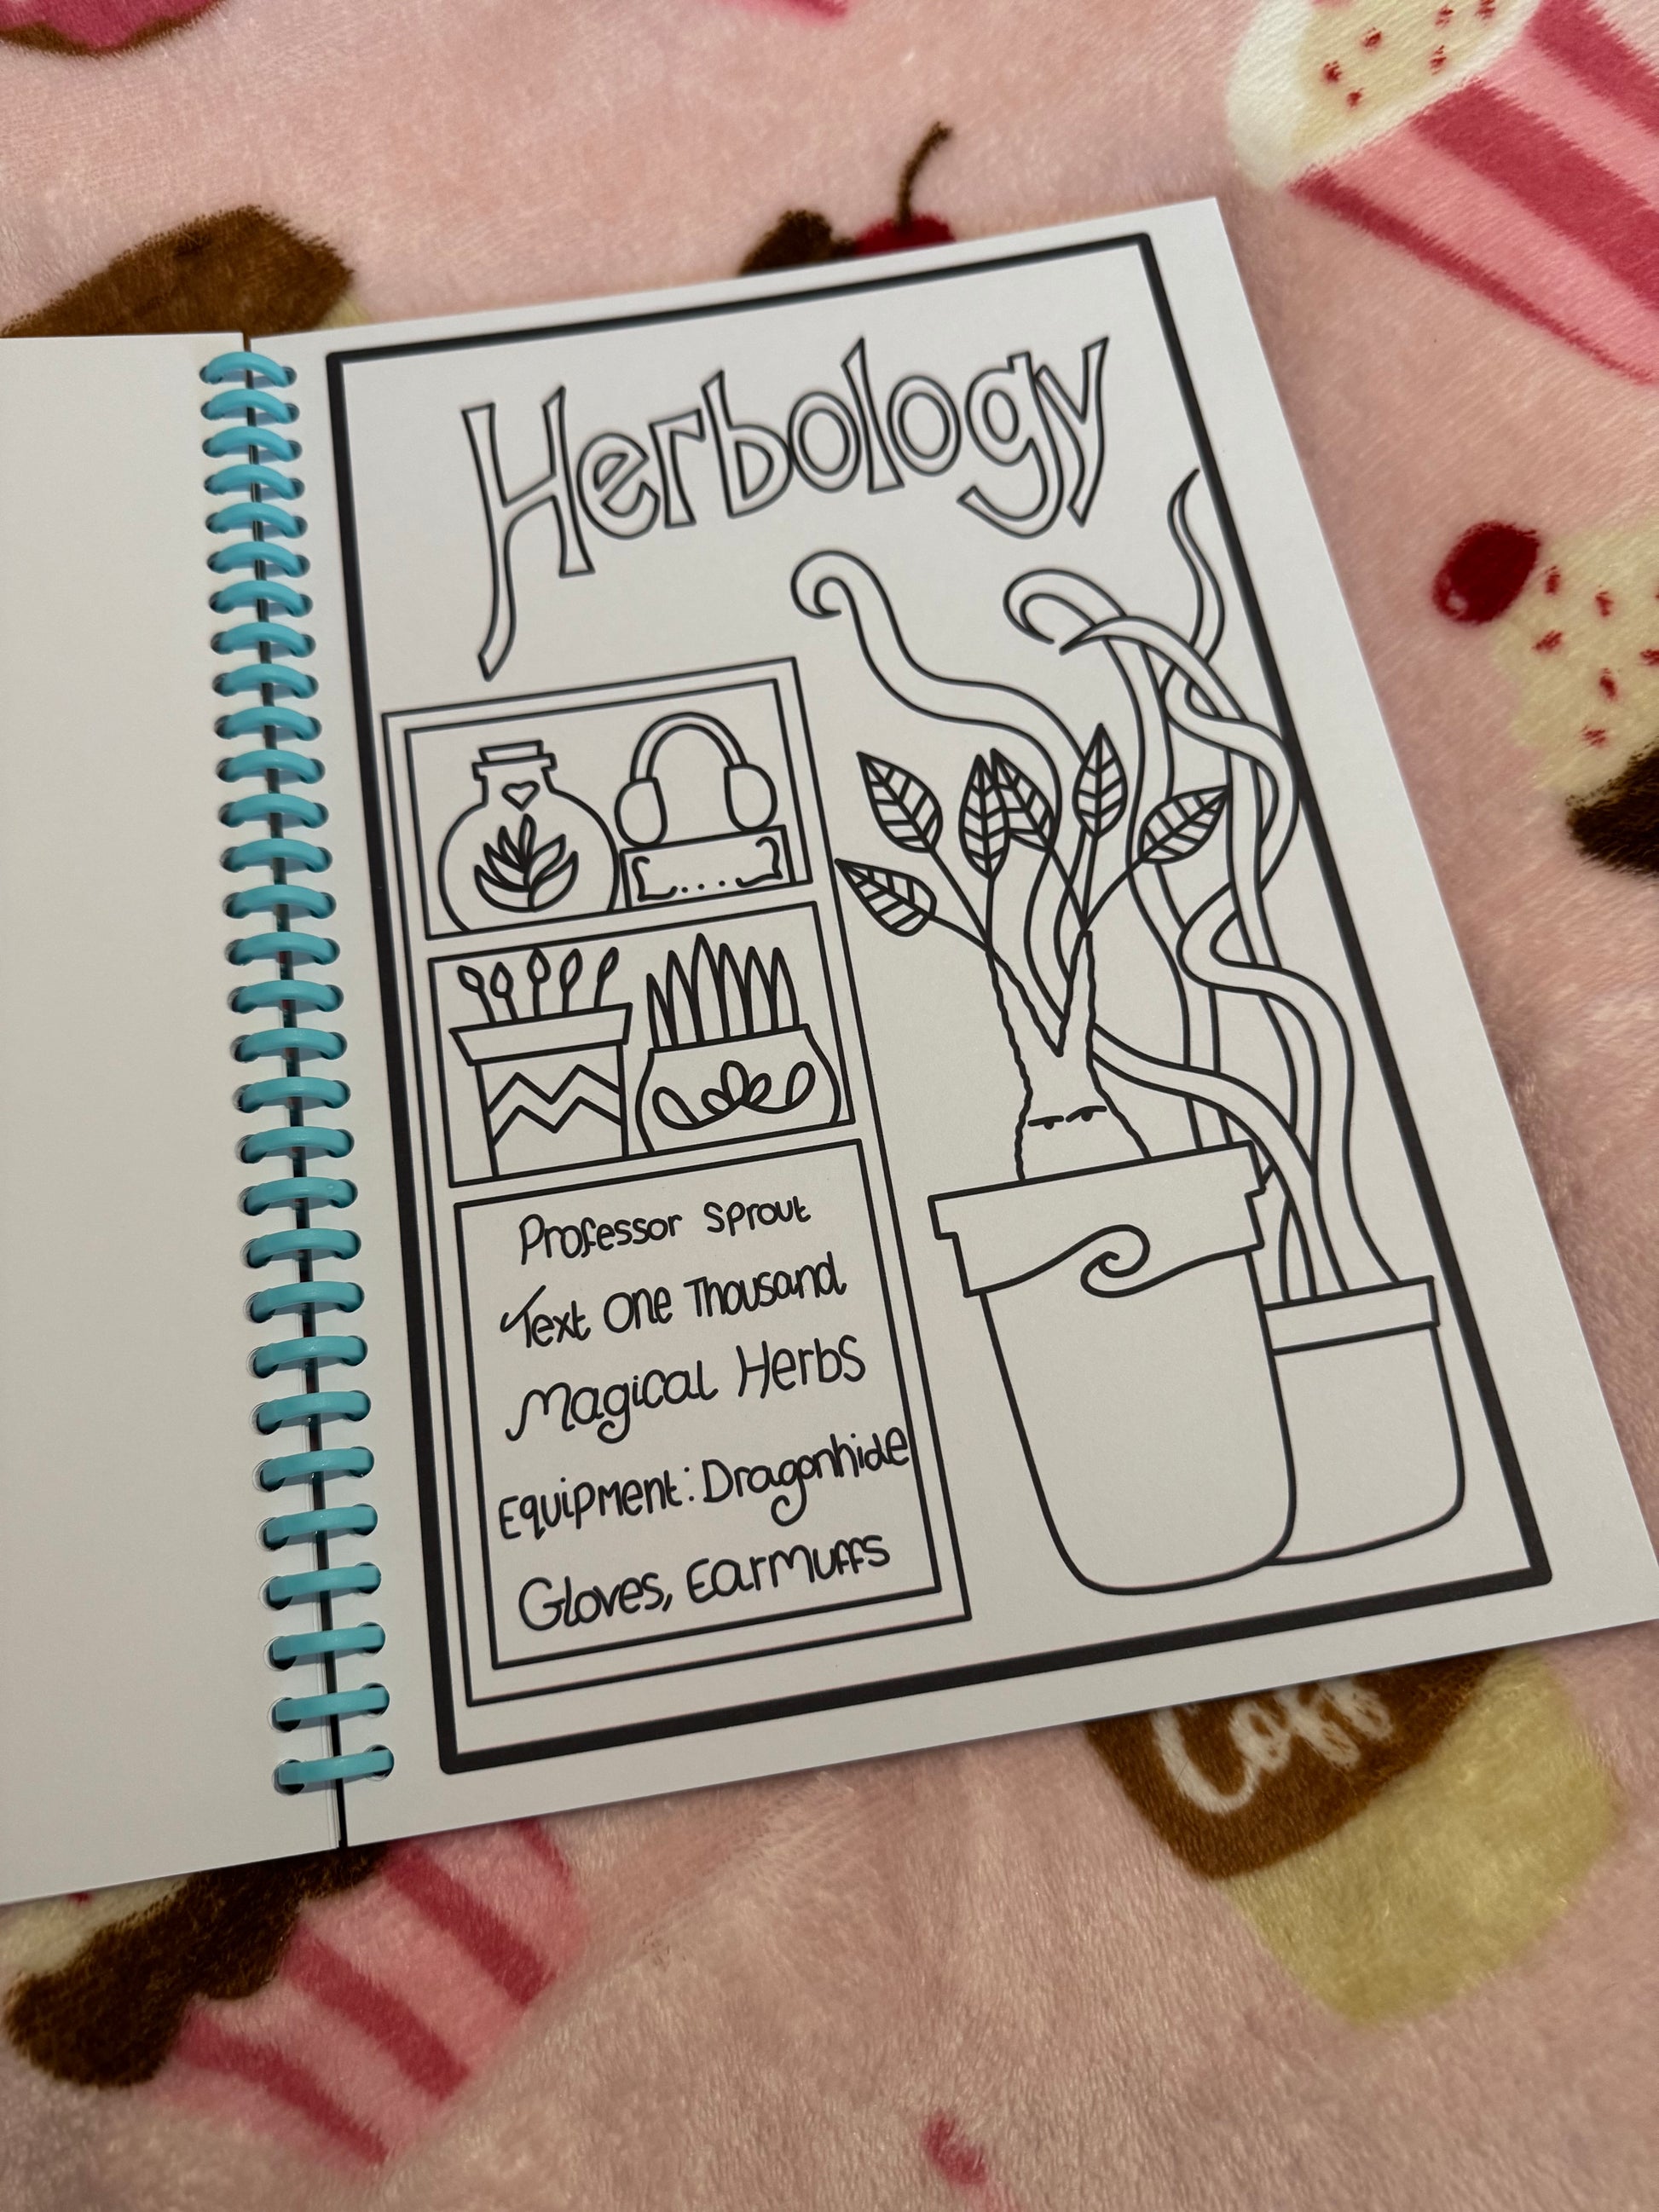 Herbology
Professor Sprout
Text One Thousand
Magical Herbs
Equipment: Dragonhide
Gloves, Earmuffs
Coff